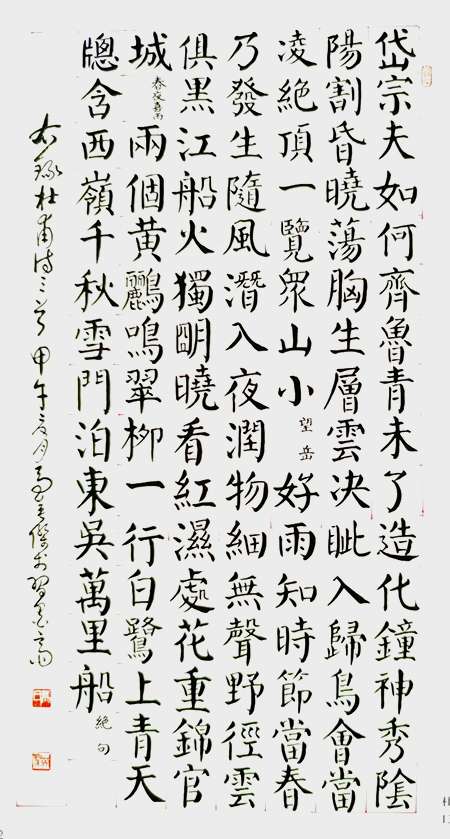 岱宗夫如何齊魯青未了造化鐘神秀陰
陽割昏曉蕩胸生層雲决眦入歸鳥會當
凌絕頂一覽衆山小 望岳 好雨知時節當春
乃發生隨風潛入夜潤物細無聲野徑雲
俱黑江船火獨明曉看紅濕處花重錦官
城 春夜喜雨 兩個黃鸝鳴翠柳一行白鷺上青天
牕含西嶺千秋雪門泊東吳萬里船 絕句
右錄杜甫詩三首 甲午夏月